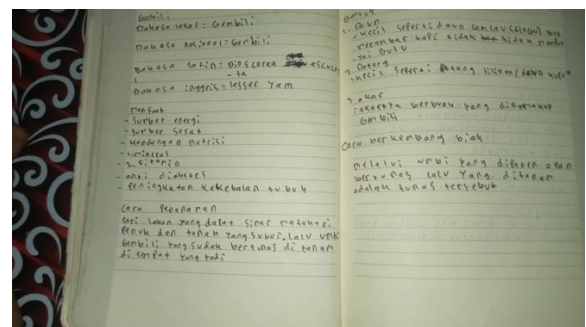 Gembili.
Bahasa lokal : Gembili
Bahasa nasional = Gembili
Bahasa latin = Dioscorea escule
- ta
Bahasa inggris = lesser yam
manfaat
- Sumber energi
- Sumber serat
- kandungan nutrisi
- mineral
- vitamin
- anti diabetes
- Peningkatan kekebalan tubuh
Cara Penanaman
Cari lahan yang dapat sinar matahari
Penuh dan tanah yang subur, lalu umbi
Gembili yang sudah bertunas di tanam
di tempat yang tadi
1. Daun
- kecil seperti daun
merambat tapi tidak
yai bulu
2. Batang
- kecil seperti batang
3. akar
= akarnya berbuah yang dinamakan
Gembili
Cara berkembang biak
melalui umbi yang dipendam akan
bertunas lalu yang ditanam
adalah tunas tersebut